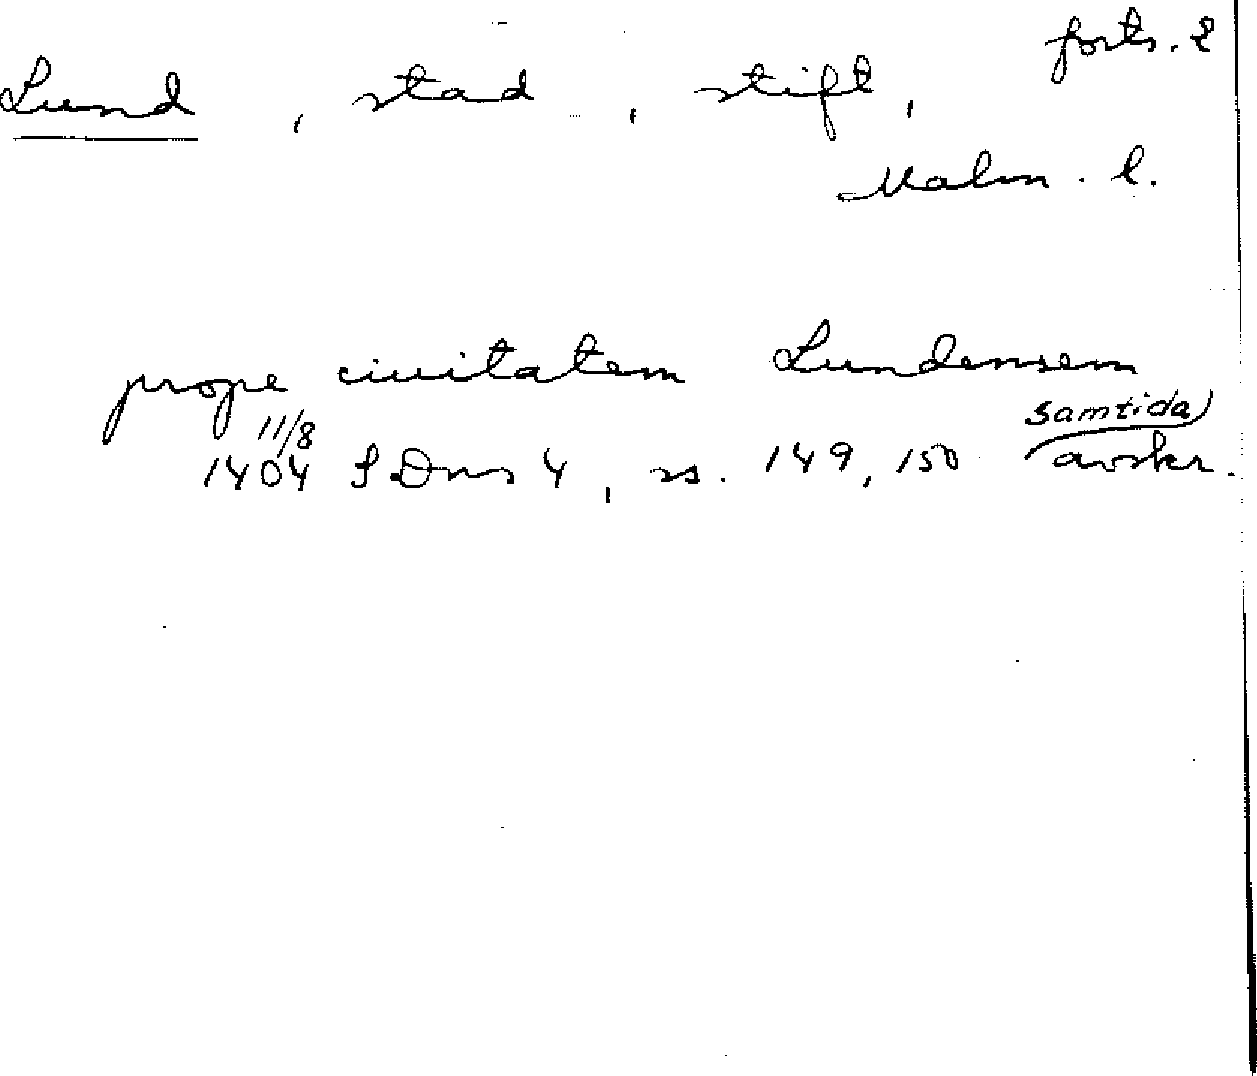 forts. 2
Lund, stad, stift,
Malm. l.
prope ciuitatem Lundensem
11/8 samtida
1404 SDns 4, ss. 149, 150 avskr.